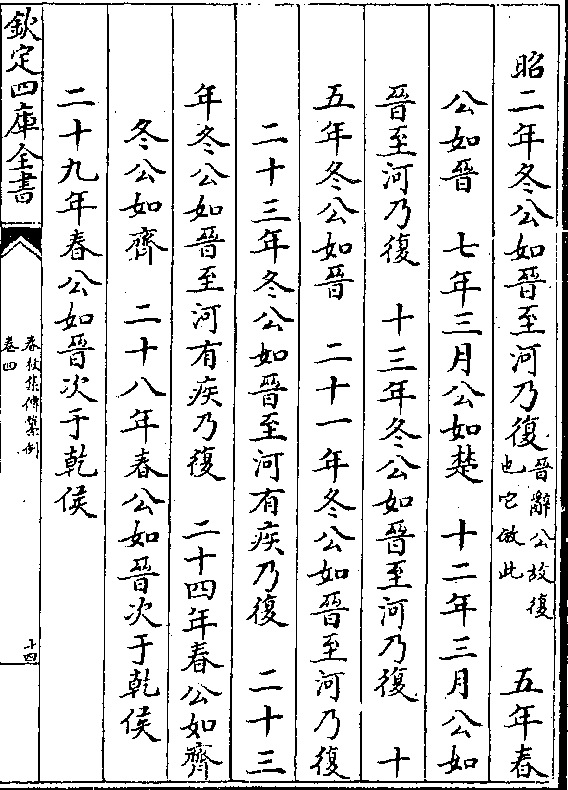 昭二年冬公如晉至河乃復 晉辭公故復也它倣此 五年春
公如晉 七年三月公如楚 十二年三月公如
晉至河乃復 十三年冬公如晉至河乃復 十
五年冬公如晉 二十一年冬公如晉至河乃復
二十三年冬公如晉至河有疾乃復 二十三
年冬公如晉至河有疾乃復 二十四年春公如齊
冬公如齊 二十八年春公如晉次于乾侯
二十九年春公如晉次于乾侯
欽定四庫全書
春秋集傳纂例
卷四
十四